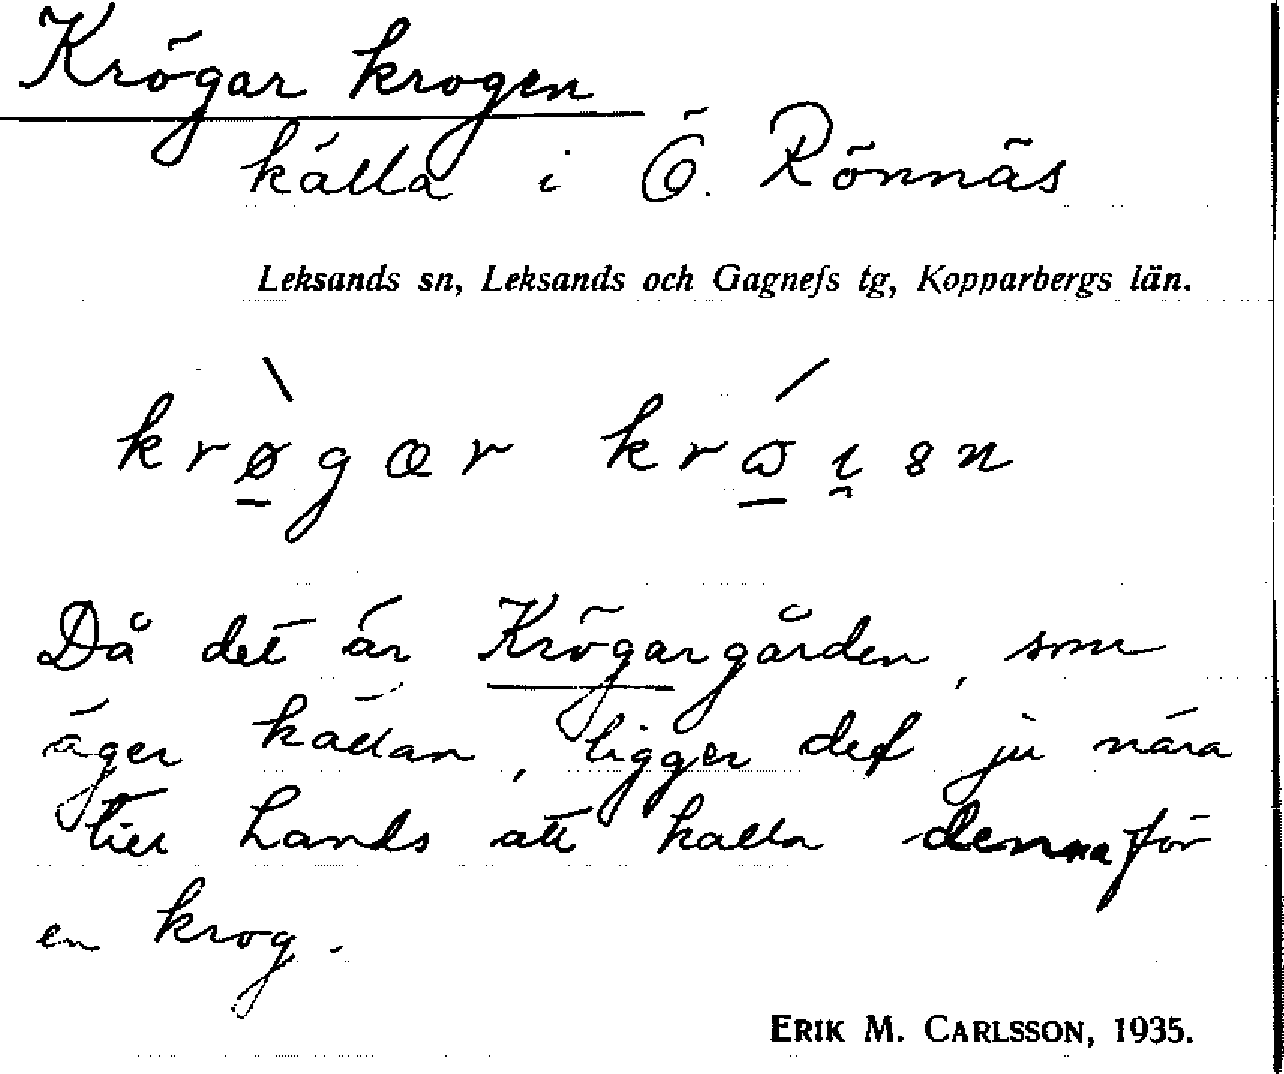 Krögar krogen
källa i Ö. Rönnäs
Leksands sn, Leksands och Gagnefs tg, Kopparbergs län.
krø̠̀gær
Då det är Krögargården, som
äger källan, ligger det ju nära
till hands att kalla denna för
en krog.
ERIK M. CARLSSON, 1935.